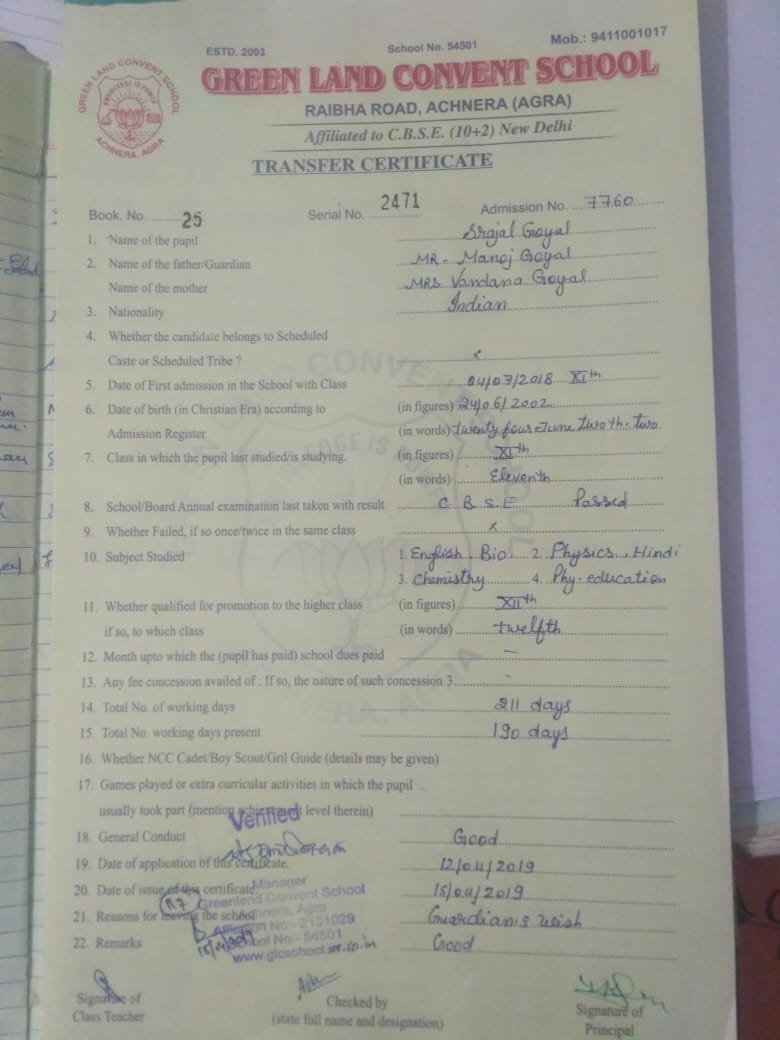 ESTD. 2003 School No. 54501 Mob.: 9411001017
GREEN LAND CONVENT SCHOOL
GREEN LAND CONVENT SCHOOL
KNOWLEDGE IS POWER
ACHNERA, AGRA
RAIBHA ROAD, ACHNERA (AGRA)
Affiliated to C.B.S.E. (10+2) New Delhi
TRANSFER CERTIFICATE
Book. No. 25 Serial No. 2471 Admission No. 7760
1. Name of the pupil Srajal Goyal
2. Name of the father/Guardian MR. Manoj Goyal
Name of the mother MRS Vandana Goyal
3. Nationality Indian
4. Whether the candidate belongs to Scheduled
Caste or Scheduled Tribe ? x
5. Date of First admission in the School with Class 04/07/2018 XIth
6. Date of birth (in Christian Era) according to (in figures) 24/06/2002
Admission Register (in words) twenty four June two th. two
7. Class in which the pupil last studied/is studying. (in figures) XIth
(in words) Eleventh
8. School/Board Annual examination last taken with result C B S E Passed
9. Whether Failed, if so once/twice in the same class x
10. Subject Studied 1. English. Bio. 2. Physics. Hindi
3. Chemistry 4. Phy. education
11. Whether qualified for promotion to the higher class (in figures) XIIth
if so, to which class (in words) twelfth
12. Month upto which the (pupil has paid) school dues paid –
13. Any fee concession availed of : If so, the nature of such concession 3. -
14. Total No. of working days 211 days
15. Total No. of working days present 190 days
16. Whether NCC Cadet/Boy Scout/Gril Guide (details may be given)
17. Games played or extra curricular activities in which the pupil
usually took part (mention achievement level therein)
Verified
18. General Conduct Good
19. Date of application of this certificate. 12/04/2019
20. Date of issue of this certificate 15/04/2019
Manager
Greenland Convent School
21. Reasons for leaving the school Guardian's wish
Achnera, Agra
Affiliation No:- 2131029
School No:- 54501
22. Remarks Good
www.glcschool.co.in
Signature of Class Teacher
Checked by
(state full name and designation)
Signature of
Principal